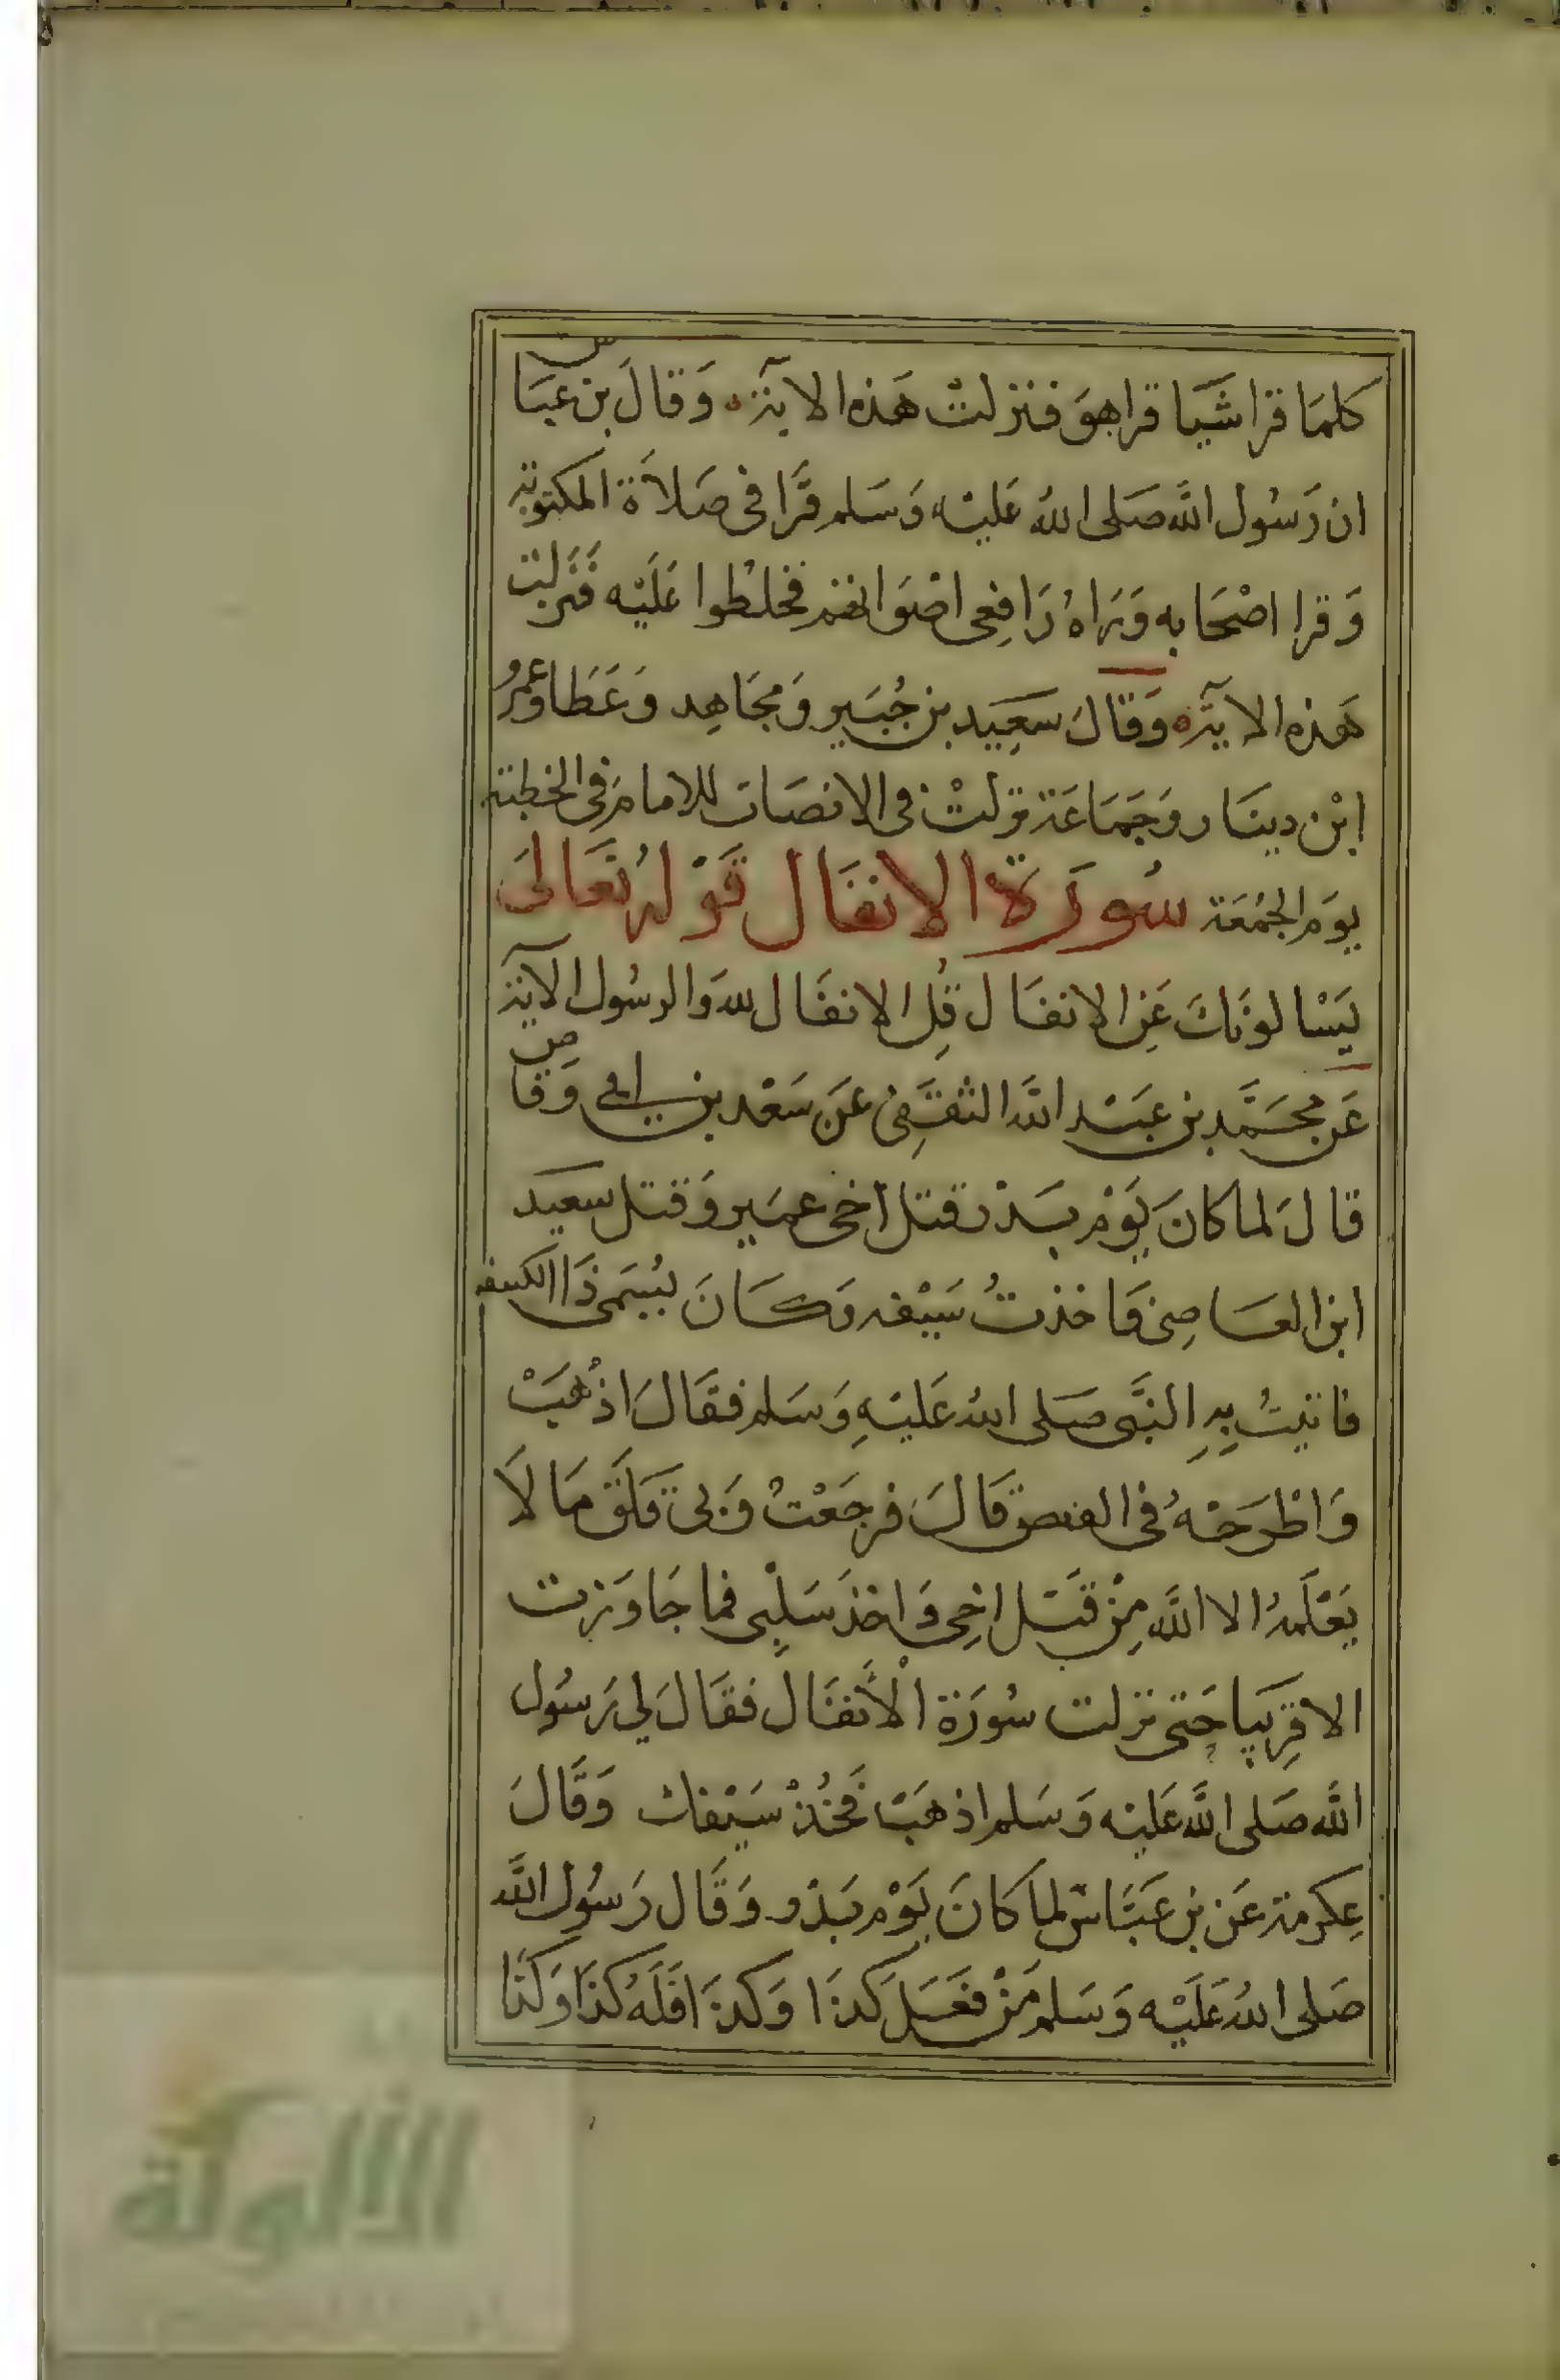 كلمَا قرا شَيَا قرا هوَ فنزلتْ هَذه الايَة وَقالَ بن عبَاس
ان رَسُول اللَّه صَلى اللهُ عَليْه وَسَلم قرَا فى صَلاَة المكتوبَة
وَقرا اصْحَابه وَرَاهُ رَافِعى اصْوَاتهم فخلطُوا عَلَيْه فَنَزلَت
هَذه الايَة وَقَالَ سَعِيد بن جُبَير وَمجَاهِد وَعَطَا وعمرُو
ابْن دينَار وَجَمَاعَة نزلتْ فى الانصَات للامَام فى الخطبَة
يوَم الجمُعَة سُورَة الانفَال قَوْلهُ تَعَالىَ
يَسْالونَكَ عَنِ الانفَال قُلِ الانفَال لله وَالرسُول الآيَة
عَن محَمَّد بن عبَد اللَّه الثقَفِى عَن سَعْد بن ابى وَقاص
قالَ لما كانَ يَوْم بَدْر قتل أخى عمَير وَقتل سعيد
ابن العَاصِى وَاخذتُ سَيْفه وَكَانَ يُسَمى ذَا الكتيفه
فاتيتُ بِهِ النَّبى صَلى اللهُ عَليْهِ وَسَلم فقَالَ اذْهَبْ
وَاطْرَحْهُ فى القبض قَالَ فرجَعْتُ وَبى قَلَق مَا لَا
يَعْلَمهُ الا اللَّه مِنْ قَتَل اخِى وَاخذَ سَلْبِى فما جَاوَزت
الا قرِيبا حَتى نزلت سُورَة الْأَنفَال فقَالَ لى رَسُول
اللَّه صَلى اللَّه عَليْه وَسَلم اذهَبْ فَخُذْ سَيْفك وَقَالَ
عِكرمَة عَن بن عَبَّاس لما كانَ يَوْم بَدْر وَقَال رَسُول اللَّه
صَلى اللهُ عَلَيْه وَسَلم مَنْ فعَل كَذَا وَكذَا فَلَهُ كَذَا وَكَذَا
الألوكة